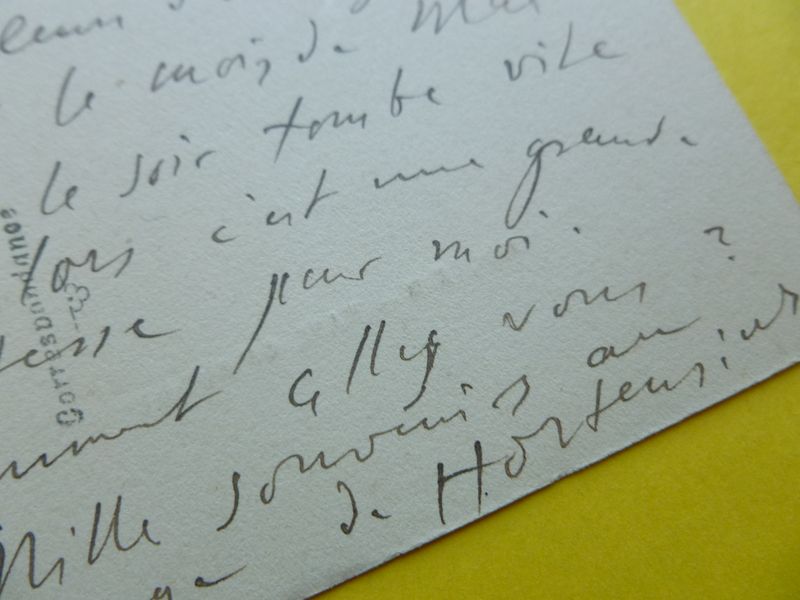 le mois de Mai
le soir tombe vite
lors c'est une grande
esse pour moi.
mment allez vous ?
Mille souvenirs au
de Hortensias
Correspondance